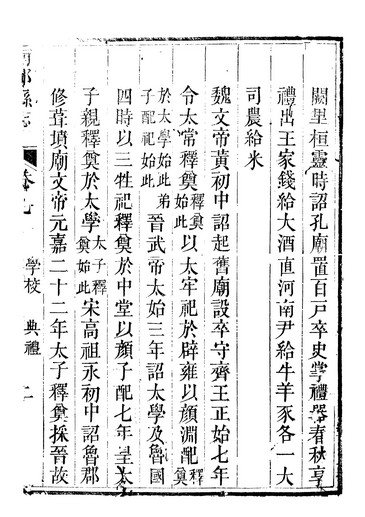 闕里桓靈時詔孔廟置百戸卒史掌禮器春秋享
禮出王家錢給大酒直河南尹給牛羊豕各一大
司農給米
魏文帝黃初中詔起舊廟設卒守齊王正始七年
令太常釋奠釋奠始此以太牢祀於辟雍以顔淵配釋奠
於太學始此弟子配祀始此晉武帝太始三年詔太學及魯國
四時以三牲祀釋奠於中堂以顔子配七年皇太
子親釋奠於太學太子釋奠始此宋高祖永初中詔魯郡
修葺墳廟文帝元嘉二十二年太子釋奠採晉故
縣志
卷七
學校 典禮 二